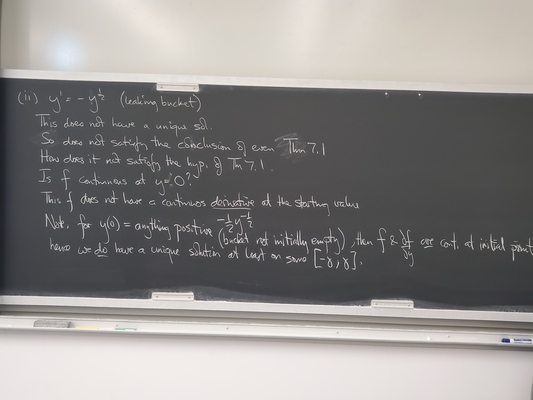 (ii) y' = - y^½ (leaking bucket)
This does not have a unique sol.
So does not satisfy the conclusion of even Thm 7.1
How does it not satisfy the hyp. of Tm 7.1.
Is f continuous at y=0?
This f does not have a continuous derivative at the starting value
-½ y^-½
Note, for y(0) = anything positive (bucket not initially empty), then f & ∂f/∂y are cont. at initial point
hence we do have a unique solution at least on some [-γ, γ].